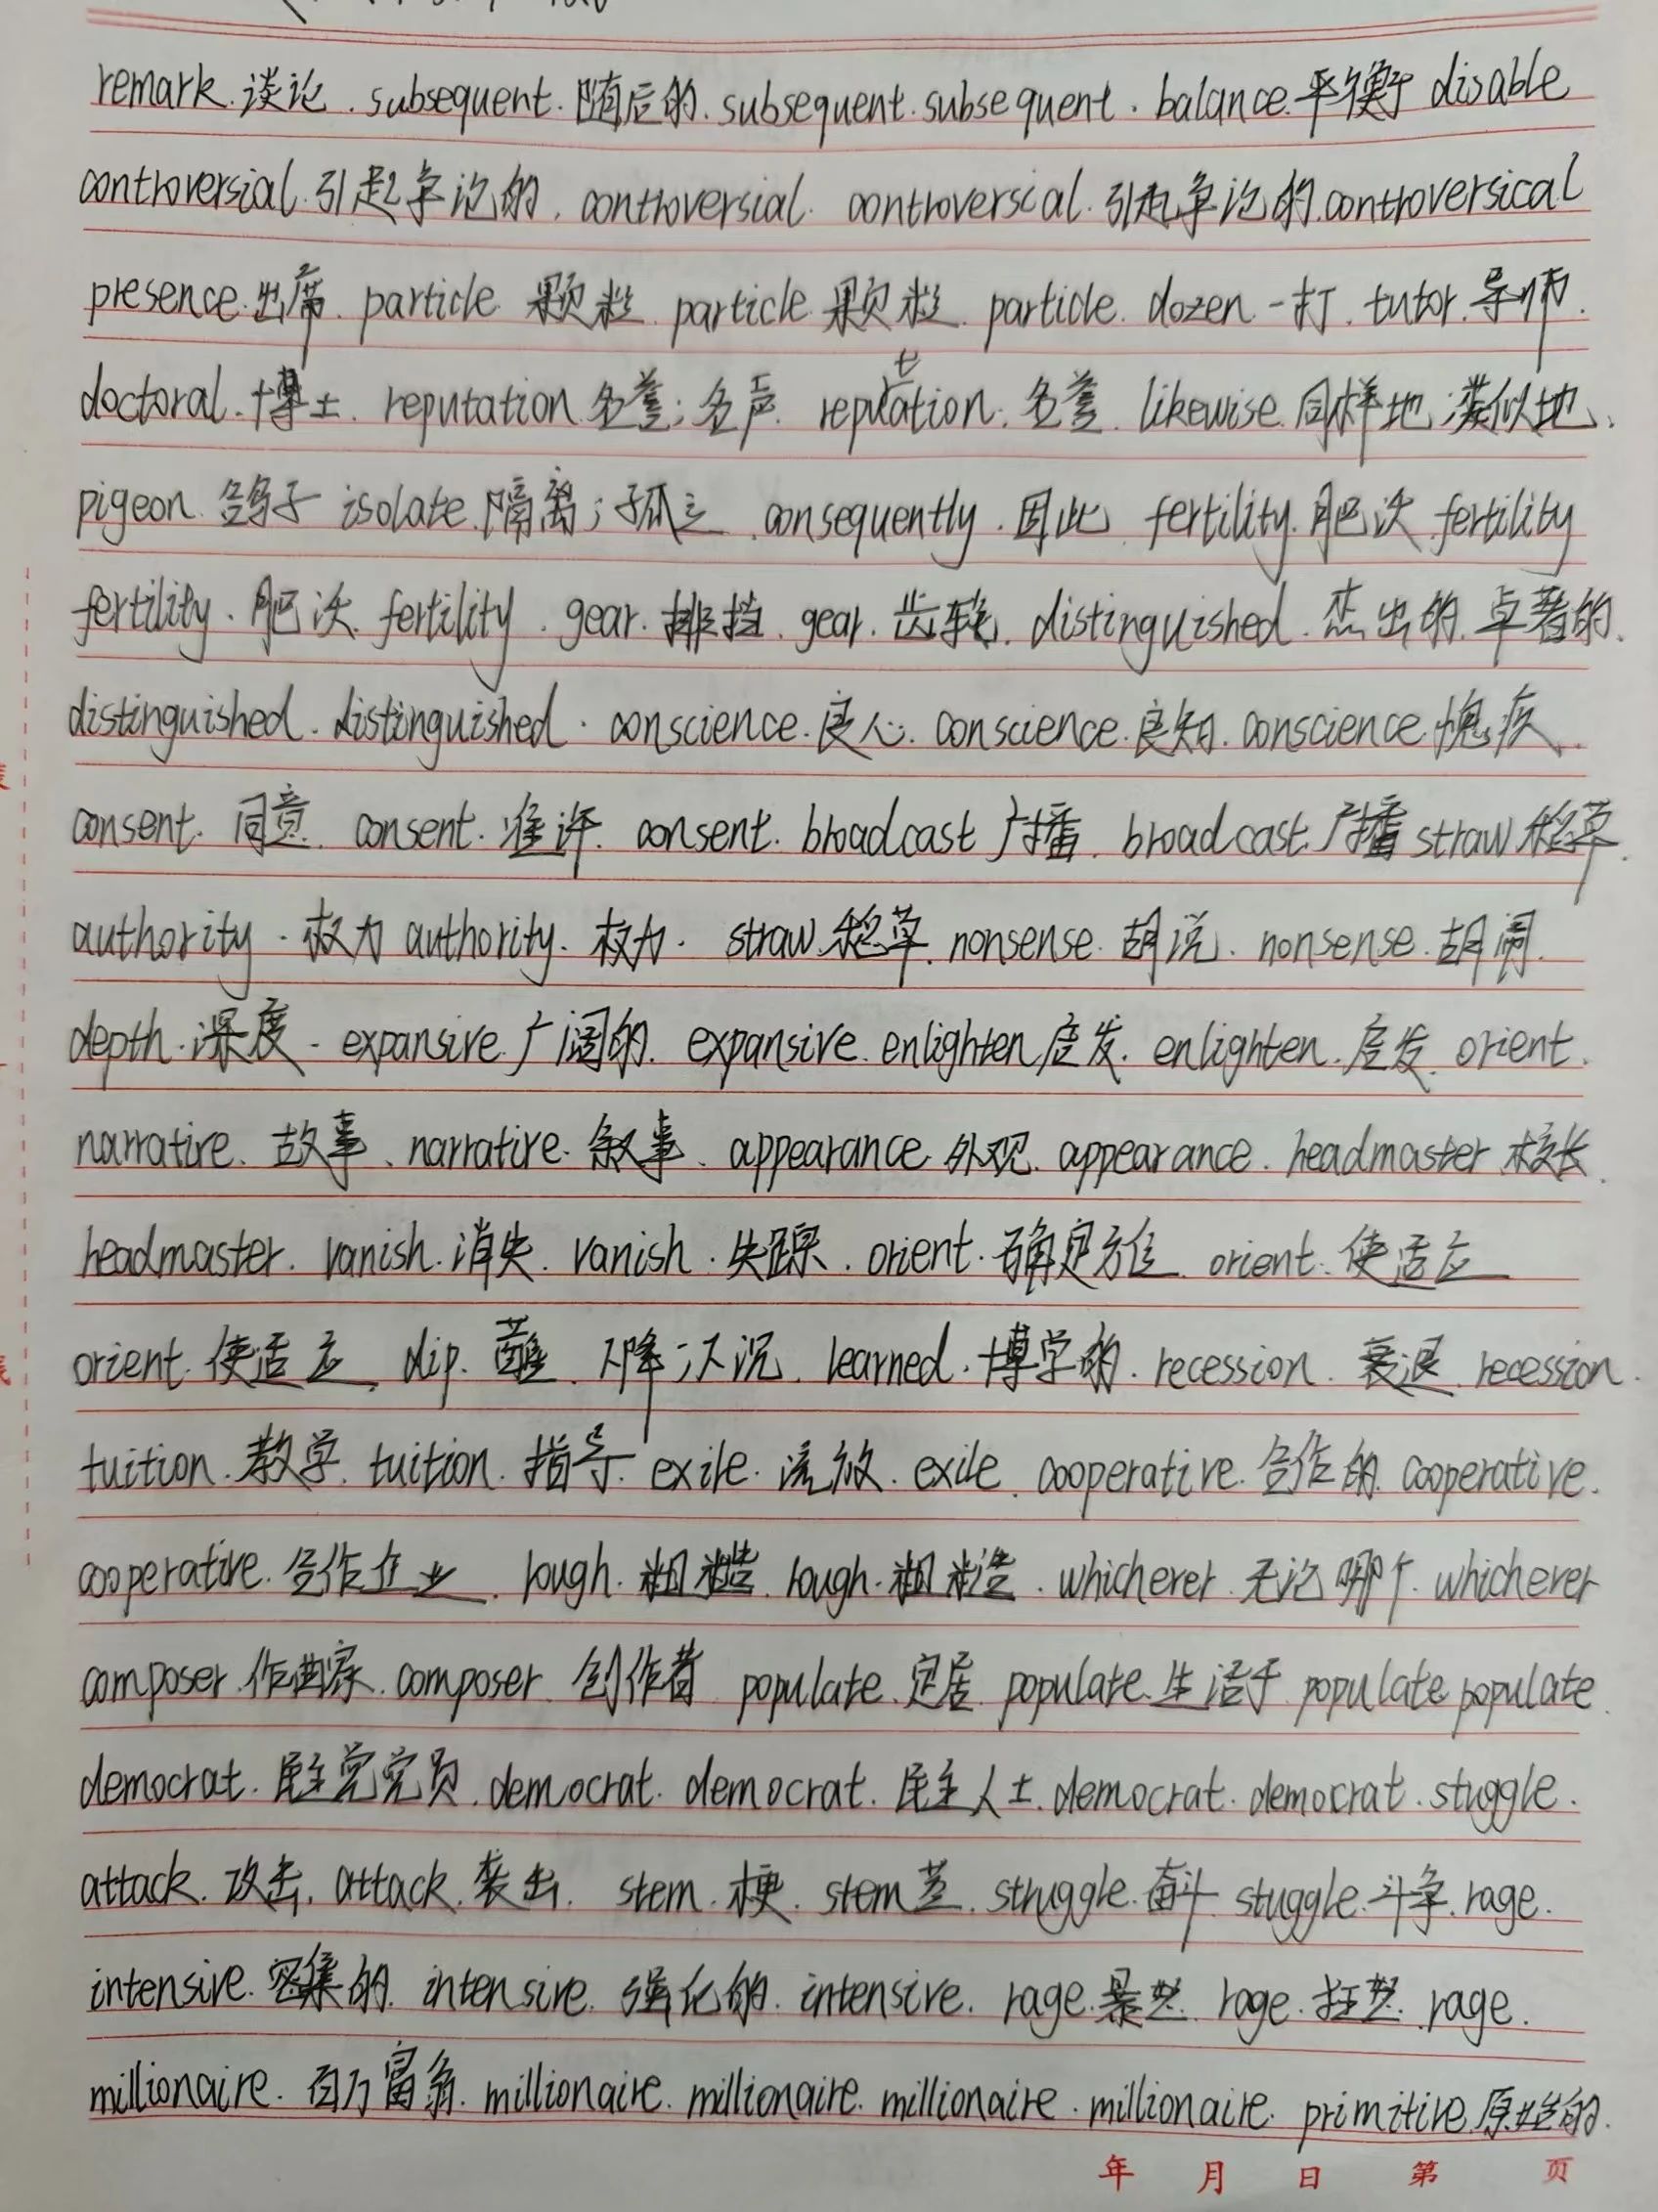 remark. 谈论. subsequent. 随后的. subsequent. subsequent. balance. 平衡 disable
controversial. 引起争论的. controversial. controversial. 引起争论的. controversical
presence. 出席. particle 颗粒. particle. 颗粒. particle. dozen 一打. tutor. 导师.
doctoral. 博士. reputation. 名誉; 名声. reputation. 名誉. likewise. 同样地; 类似地.
pigeon. 鸽子 isolate. 隔离; 孤立. consequently. 因此. fertility. 肥沃. fertility
fertility. 肥沃. fertility. gear. 排挡. gear. 齿轮. distinguished. 杰出的. 卓著的.
distinguished. distinguished. conscience. 良心. conscience. 良知. conscience. 愧疚.
consent. 同意. consent. 准许. consent. broadcast 广播. broadcast. 广播 straw 稻草.
authority. 权力 authority. 权力. straw. 稻草. nonsense. 胡说. nonsense. 胡闹.
depth. 深度. expansive. 广阔的. expansive. enlighten 启发. enlighten. 启发. orient.
narrative. 故事. narrative. 叙事. appearance. 外观. appearance. headmaster 校长.
headmaster. vanish. 消失. vanish. 失踪. orient. 确定方位. orient. 使适应
orient. 使适应. dip. 蘸. 下降; 下沉. learned. 博学的. recession. 衰退. recession.
tuition. 教学. tuition. 指导. exile. 流放. exile. cooperative. 合作的. cooperative.
cooperative. 合作企业. rough. 粗糙. rough. 粗糙. whichever. 无论哪个. whichever
composer. 作曲家. composer. 创作者 populate. 定居. populate. 生活于 populate populate.
democrat. 民主党党员. democrat. democrat. 民主人士. democrat. democrat. stuggle.
attack. 攻击. attack. 袭击. stem. 梗. stem 茎. struggle. 奋斗. stuggle. 斗争. rage.
intensive. 密集的. intensive. 强化的. intensive. rage. 暴怒. rage. 狂怒. rage.
millionaire. 百万富翁. millionaire. millionaire. millionaire. millionaire. primitive. 原始的.
年 月 日 第 页